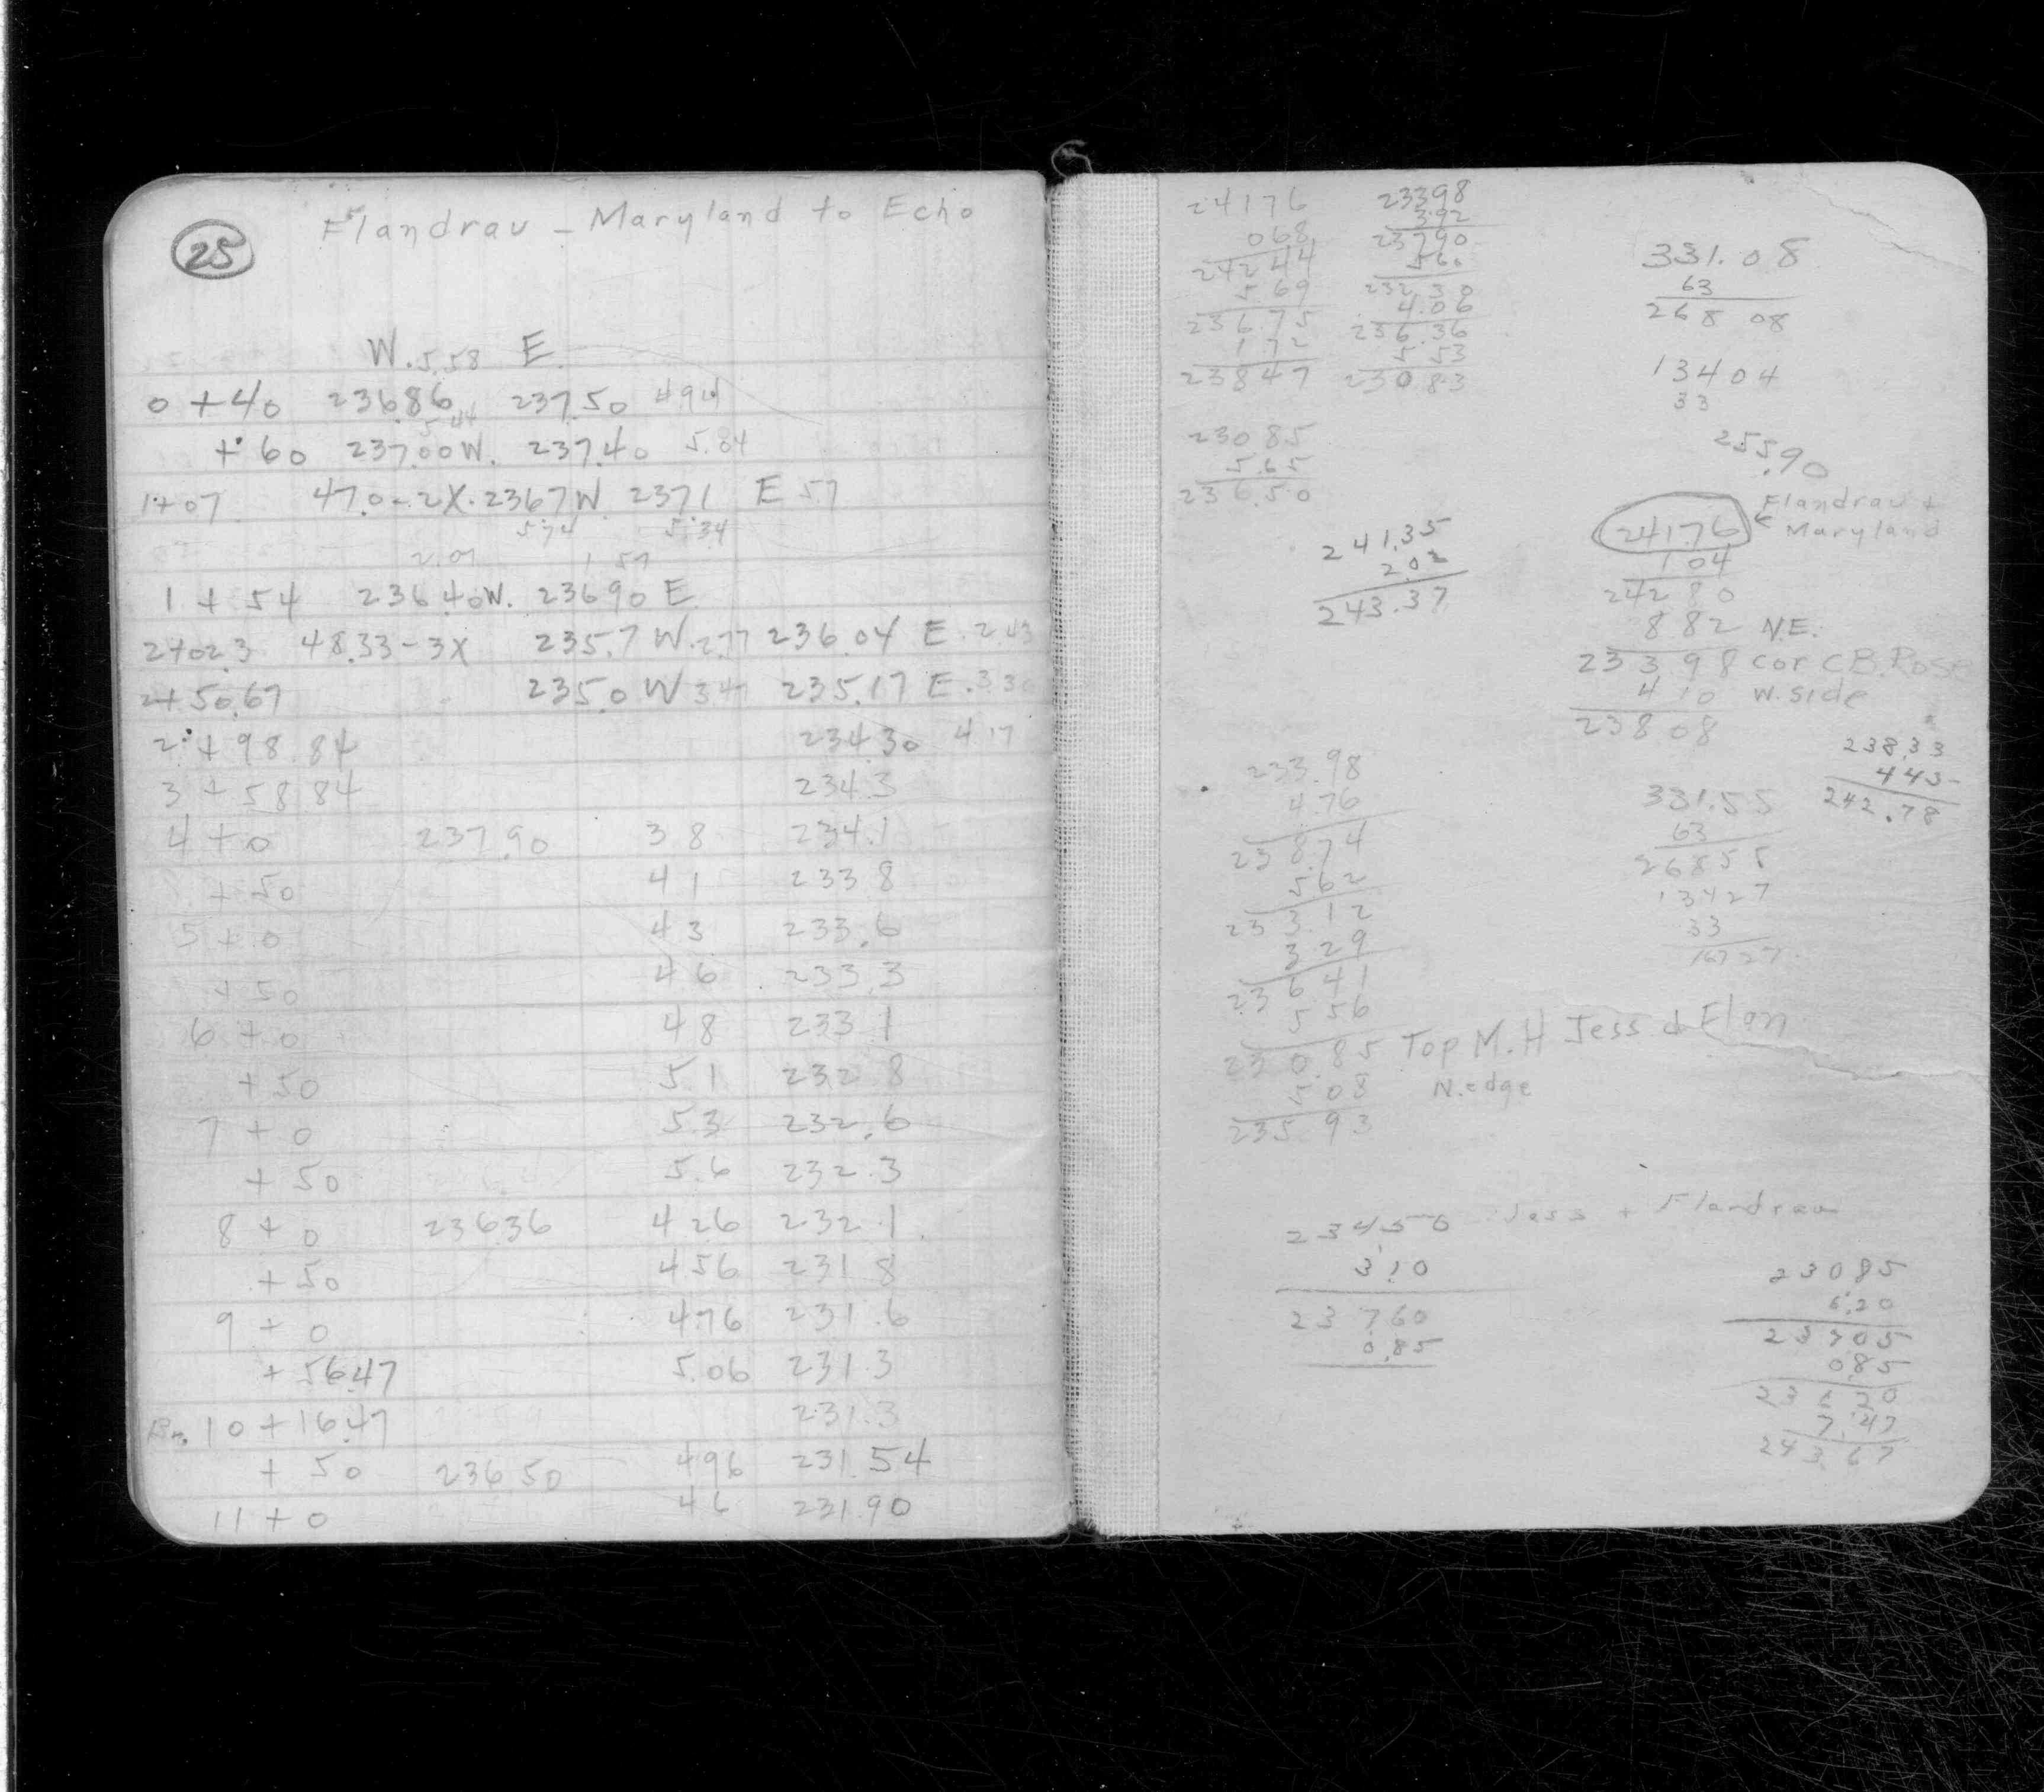 25
Flandrau - Maryland to Echo
W. 5.58 E.
0 + 40 236.86 237.50 494
5.44
+ 60 237.00 W. 237.40 5.84
1+07 47.0-2X. 2367 W. 2371 E 57
5.74 5.34
2.07 1.57
1 + 54 236.40 W. 236.90 E
2+02.3 48.33-3X 235.7 W. 2.77 236.04 E. 2.43
2+50.67 235.0 W 347 235.17 E. 3.30
2 + 98.84 234.30 4.17
3 + 58.84 234.3
4 + 0 237.90 3 8 234.1
+ 50 4 1 233 8
5 + 0 4 3 233.6
+ 50 4 6 233.3
6 + 0 4 8 233 1
+ 50 5.1 232 8
7 + 0 5.3 232.6
+ 50 5.6 232.3
8 + 0 23636 4 26 232.1
+ 50 4 56 231 8
9 + 0 4.76 231.6
+ 56.47 5.06 231.3
10 + 16.47 231.3
+ 50 236.50 496 231.54
11 + 0 4 6 231.90
24176
068
24244
569
236.75
172
23847
23398
392
23790
560
23230
4.06
236.36
5 53
23083
331.08
63
268 08
13404
33
255.90
23085
5.65
236.50
241.35
2.02
243.37
24176 Flandrau + Maryland
104
24280
882 N.E.
23398 cor C.B. Rose
410 W. side
23808
238.33
443
242.78
233.98
4.76
238.74
562
233.12
3 29
236 41
5 56
230.85 Top M.H Jess & Flan
5 08 N. edge
235.93
331.55
63
26855
13427
33
16727
Jess + Flandrau
23450
3.10
23760
0.85
23085
6.20
23705
085
23620
7.47
243.67